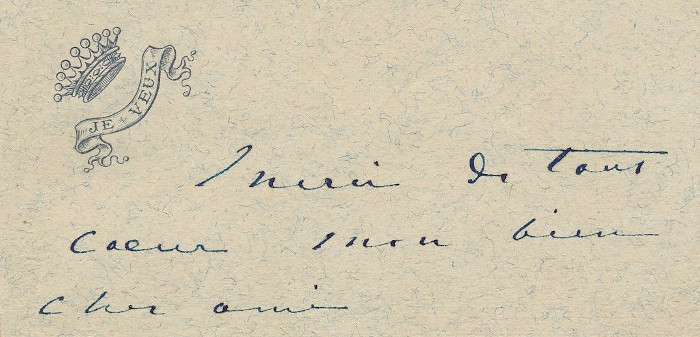 JE VEUX
Merci de tout
coeur mon bien
cher ami